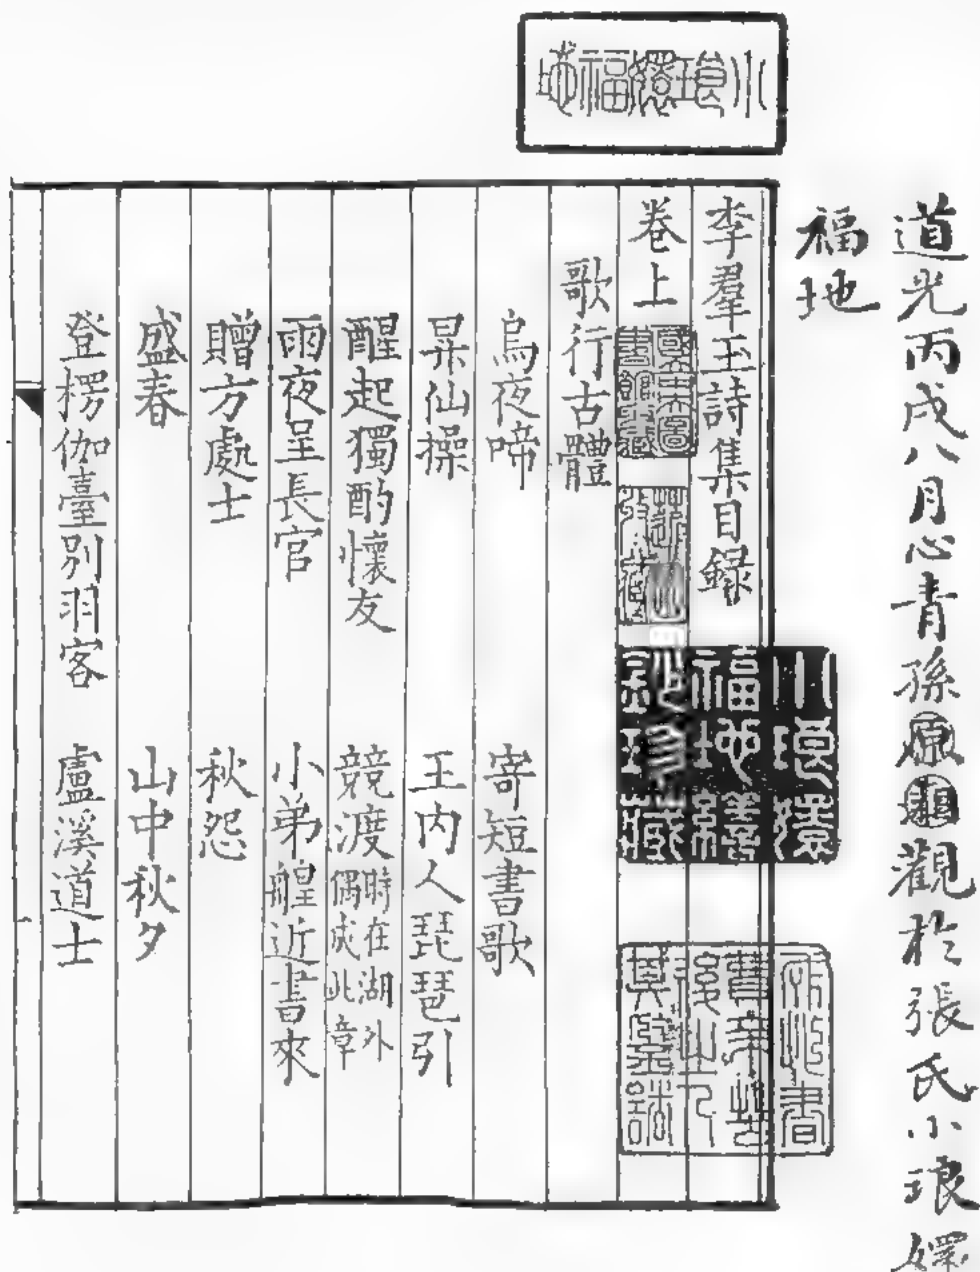 道光丙戌八月心青孫原湘觀於張氏小琅嬛
福地
小琅嬛福地
李羣玉詩集目録
卷上
歌行古體
烏夜啼
寄短書歌
昇仙操
王内人琵琶引
醒起獨酌懷友
競渡時在湖外偶成此章
雨夜呈長官
小弟艎近書來
贈方處士
秋怨
盛春
山中秋夕
登楞伽臺別羽客
盧溪道士
小琅嬛福地繕鈔珍藏